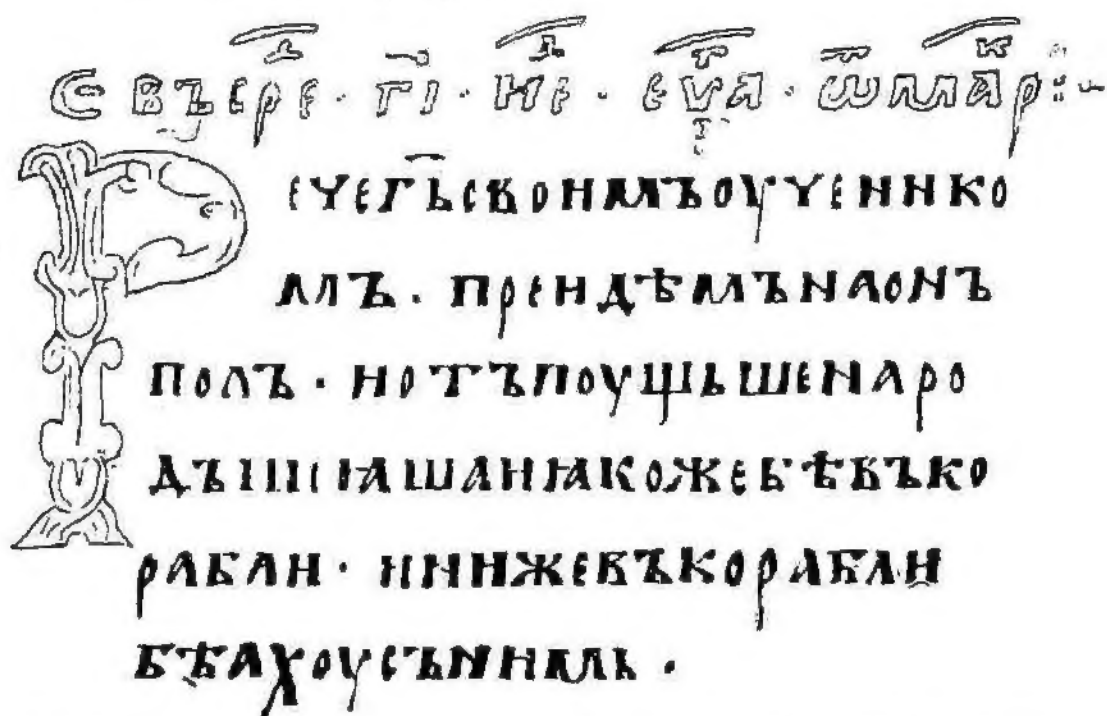 С въ срⷣе · г҃і · нⷣе · еѵⷢа · ѿ маⷬ҇рⷦ :~
Речегь҃своимъоученико
мъ · преидѣмънаонъ
полъ · иотъпоущьшенаро
дъіпоꙗшаиꙗкожебѣвъко
рабли · иинижевъкорабли
бѣахоусънимь ·